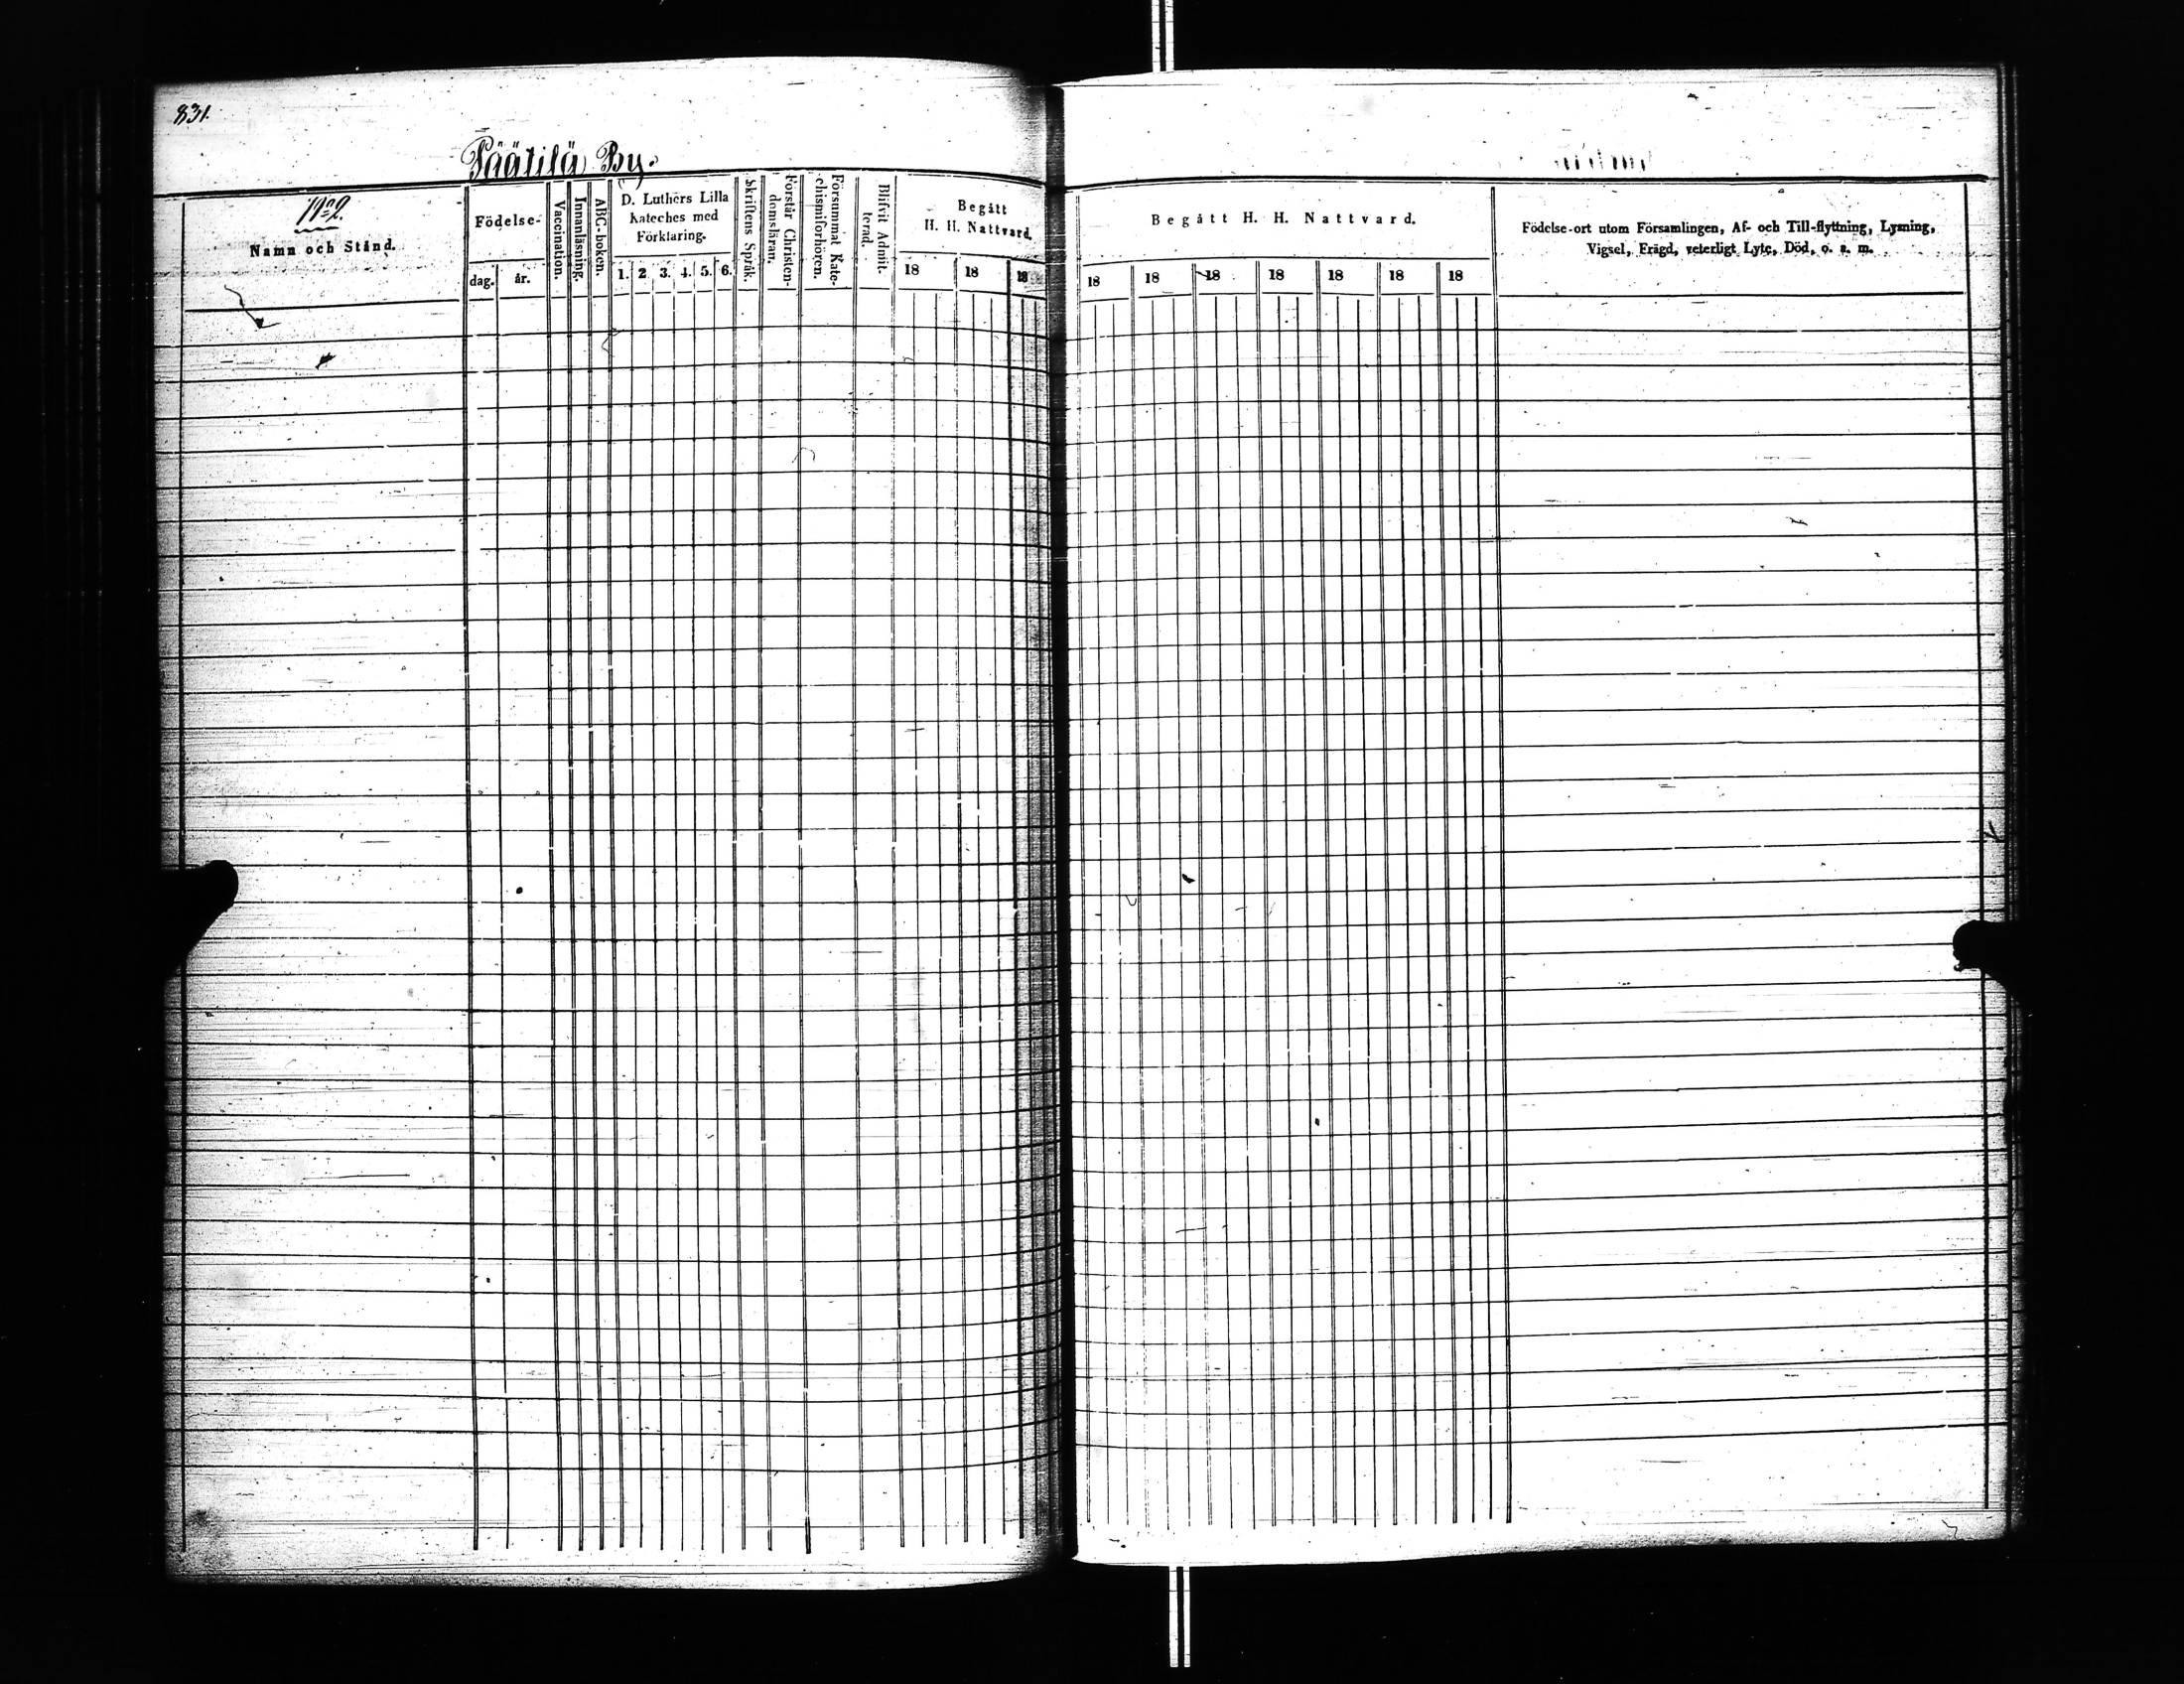 831.
Päätilä By.
Nº 2.
Namn och Stånd.
Födelse-
dag. år.
Vaccination.
Innanläsning.
ABC-boken.
D. Luthers Lilla
Kateches med
Förklaring.
1. 2. 3. 4. 5. 6.
Skriftens Språk.
Förstår Christen-
domsläran.
Försummat Kate-
chismiförhören.
Blifvit Admit-
terad.
Begått
H. H. Nattvard.
18 18 18
Begått H. H. Nattvard.
18 18 18 18 18 18 18
Födelse-ort utom Församlingen, Af- och Till-flyttning, Lysning,
Vigsel, Frägd, veterligt Lyte, Död, o. s. m.